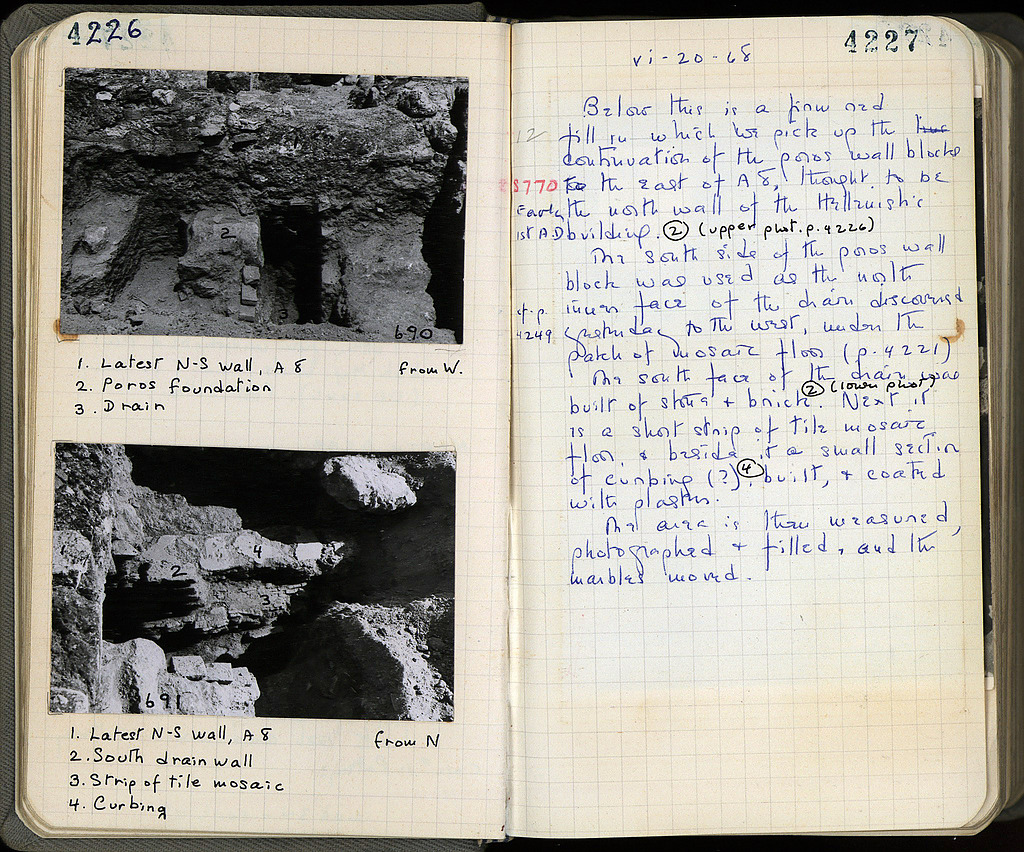 4226
2
3
690
1. Latest N-S wall, A 8
from W.
2. Poros foundation
3. Drain
1
4
2
3
691
1. Latest N-S wall, A 8
from N
2. South drain wall
3. Strip of tile mosaic
4. Curbing
4227
vi-20-68
Below this is a firm red
12 fill in which we pick up the
continuation of the poros wall blocks
S770 to the east of A 8, thought to be
Early the north wall of the Hellenistic
1st AD building. ② (upper phot. p. 4226)
The south side of the poros wall
block was used as the north
cf. p. inner face of the drain discovered
4249 yesterday to the west, under the
patch of mosaic floor (p. 4221)
The south face of the drain was
② (lower phot)
built of stone + brick. Next it
is a short strip of tile mosaic
floor, & beside it a small section
of curbing (?) ④, built, + coated
with plaster.
The area is then measured,
photographed + filled, and the
marbles moved.